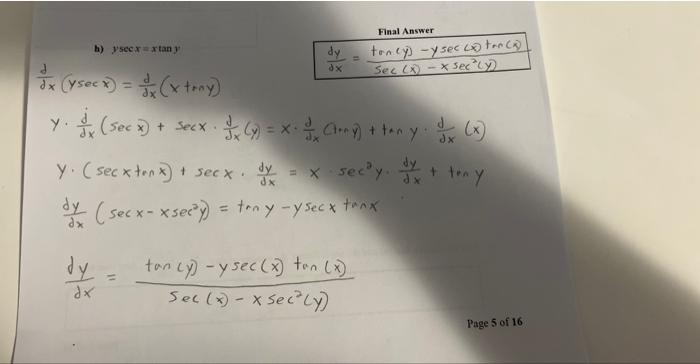 Final Answer
h) y sec x = x tan y
dy/dx = tan(y) - y sec(x) tan(x) / sec(x) - x sec²(y)
d/dx (y sec x) = d/dx (x tan y)
y · d/dx (sec x) + sec x · d/dx (y) = x · d/dx (tan y) + tan y · d/dx (x)
y · (sec x tan x) + sec x · dy/dx = x · sec² y · dy/dx + tan y
dy/dx (sec x - x sec² y) = tan y - y sec x tan x
dy/dx = tan(y) - y sec(x) tan(x) / sec(x) - x sec²(y)
Page 5 of 16